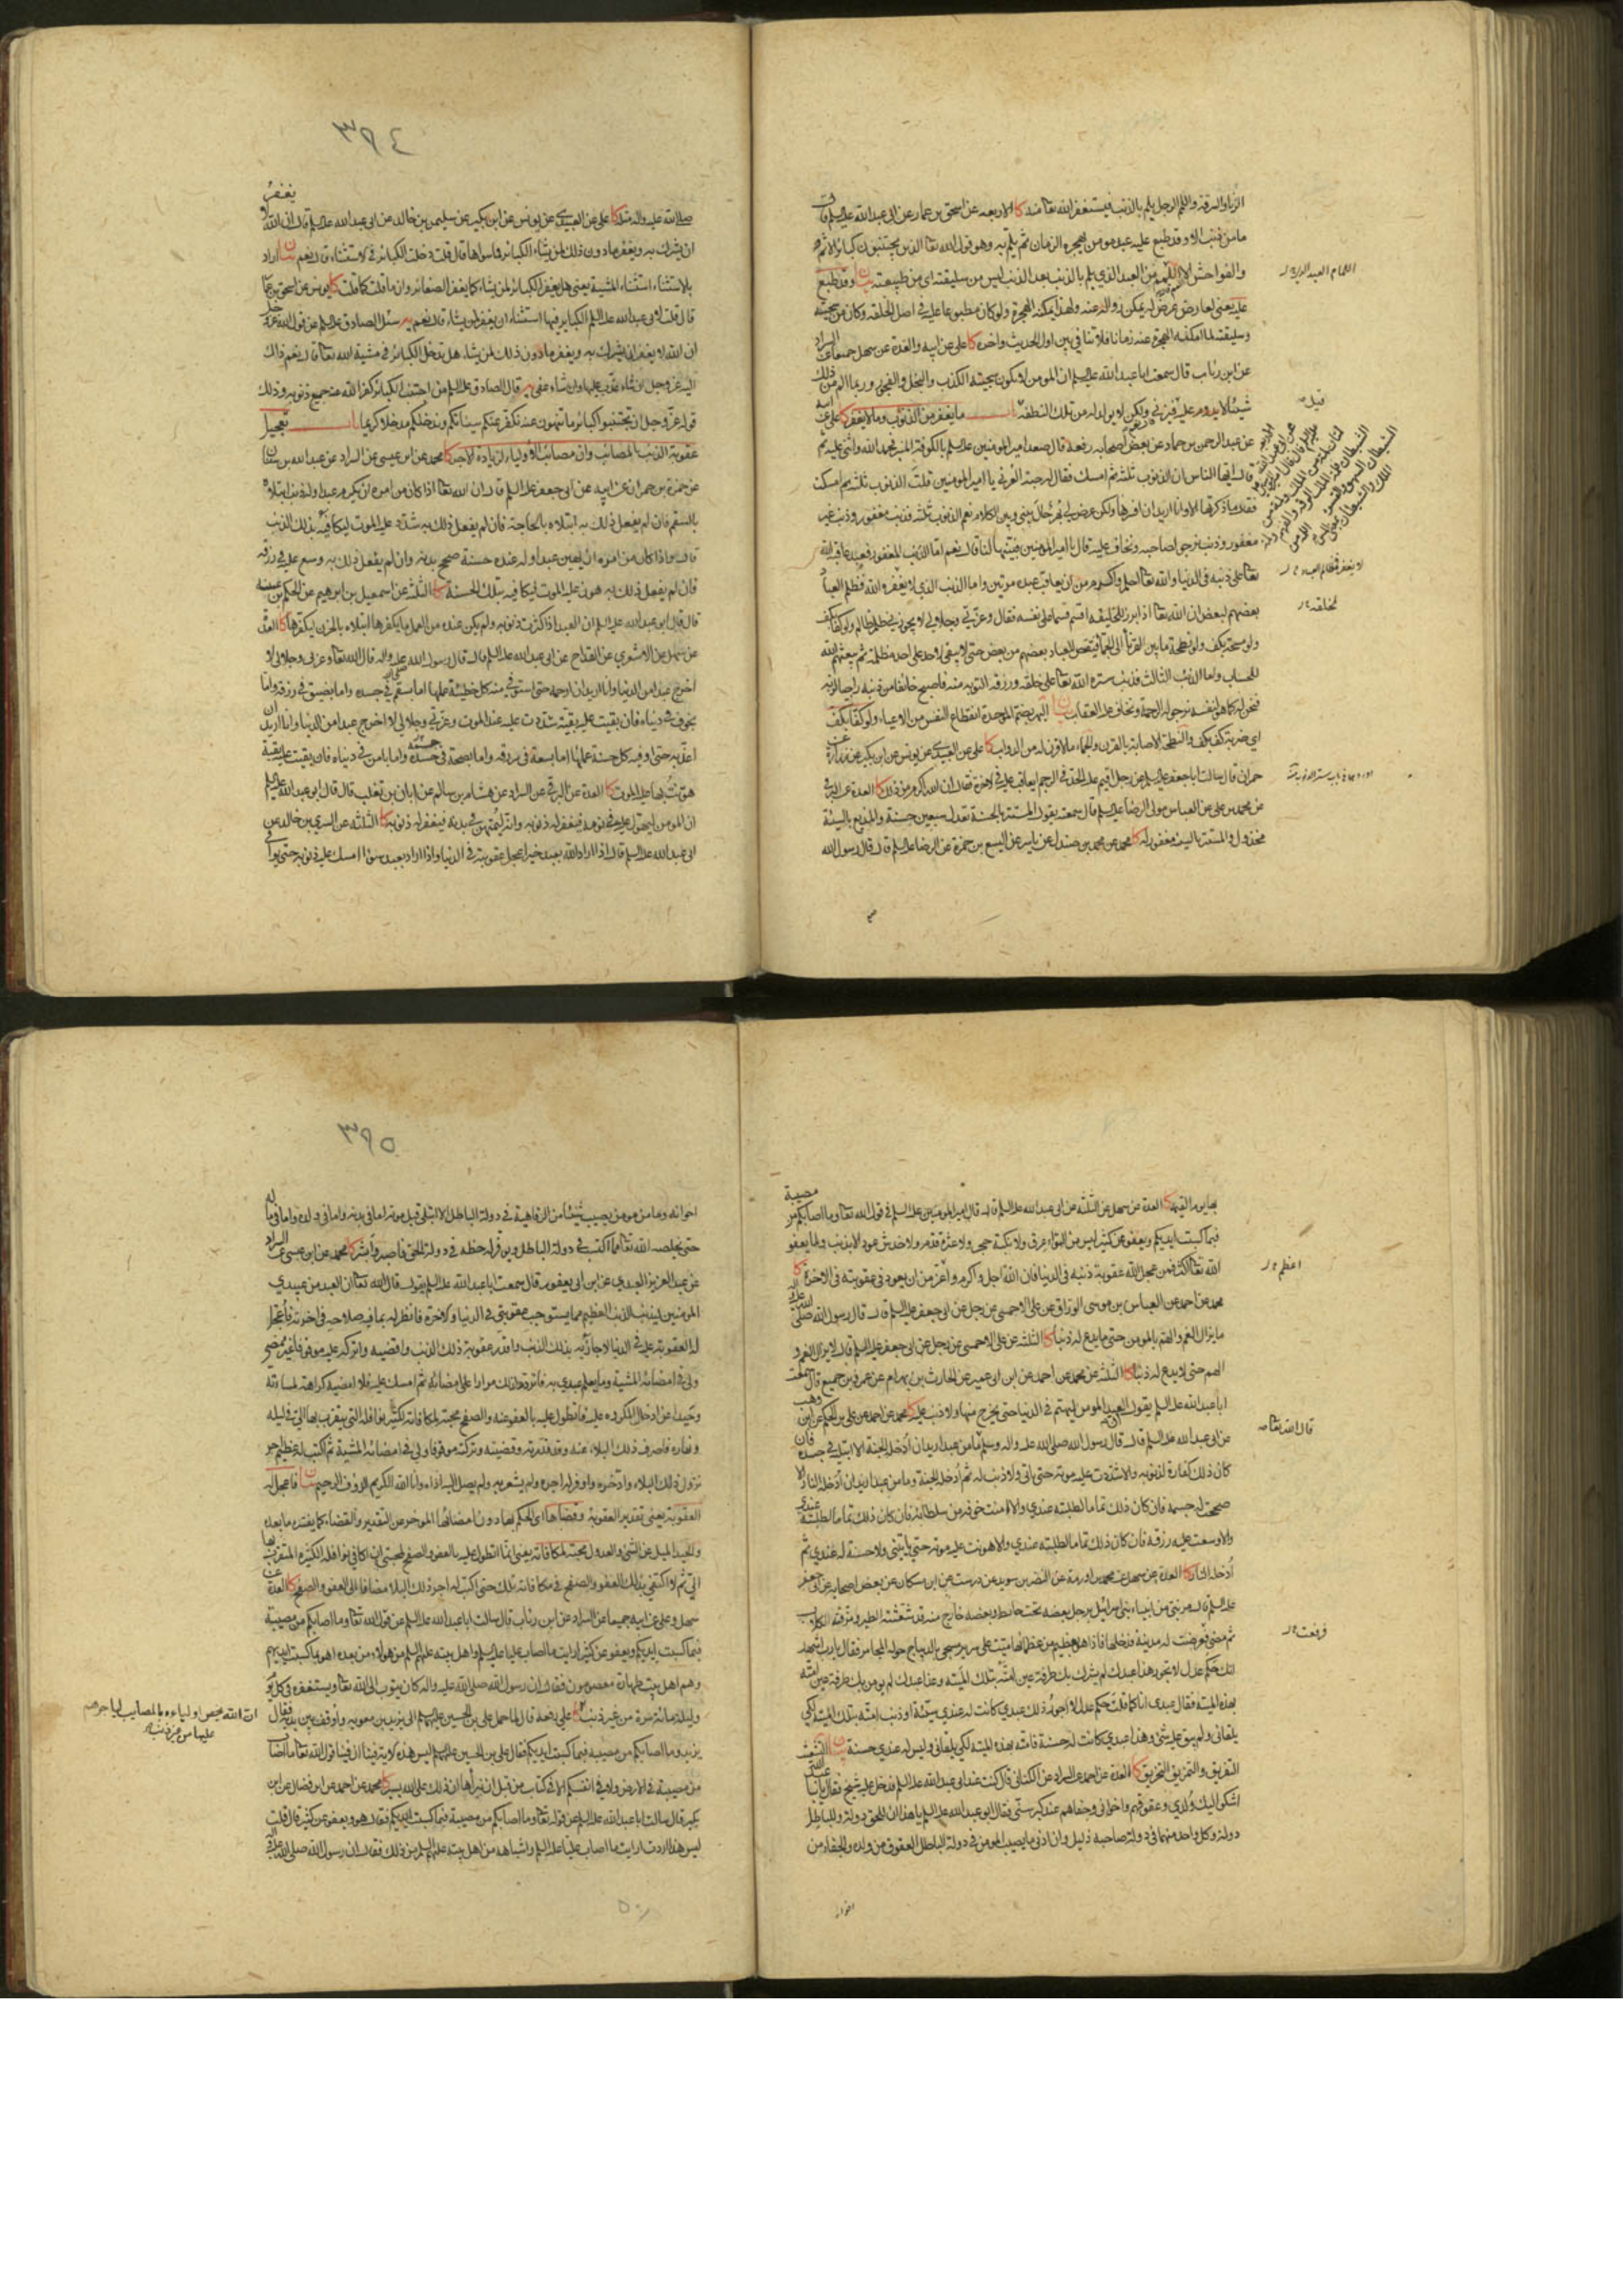 الزنا والسرقة واللمم الرجل يلم بالذنب فيستغفر الله تعا منه كا الاربعة عن اسحق بن عمار عن ابى عبدالله عليه السلم قال
ما من ذنب الا وقد طبع عليه عبد مومن يهجره الزمان ثم يلم به وهو قول الله تعا الذين يجتنبون كبائر الاثم
والفواحش الا اللمم من العبد الذي يلم بالذنب بعد الذنب ليس من سليقته اى من طبيعته بيان وقد طبع
عليه يعنى لعارض عرض له يمكن زواله عنه ولهذا يمكنه الهجرة ولو كان مطبوعا عليه في اصل الخلقة وكان من سجيته
وسليقته لما امكنه الهجرة عنه زمانا فلا تنافي بين اول الحديث واخره كا على عن ابيه والعدة عن سهل جميعا عن السراد
عن ابن رئاب قال سمعت ابا عبدالله عليه السلم ان المومن لا يكون سجيته الكذب والبخل والفجور وربما الم من ذلك
شيئا لا يدوم عليه قيل فيزنى ولكن لا يولد له من تلك النطفة باب ما يغفر من الذنوب وما لا يغفر كا على عن ابيه
عن عبد الرحمن بن حماد عن بعض اصحابه رفعه قال صعد امير المومنين عليه السلم بالكوفة المنبر فحمد الله واثنى عليه ثم
قال ايها الناس ان الذنوب ثلثة ثم امسك فقال له حبة العرنى يا امير المومنين قلت الذنوب ثلثة ثم امسكت
فقال ما ذكرتها الا وانا اريد ان افسرها ولكن عرض لى بهر حال بينى وبين الكلام نعم الذنوب ثلثة فذنب مغفور وذنب غير
مغفور وذنب نرجو لصاحبه ونخاف عليه قال يا امير المومنين فبينها لنا قال نعم اما الذنب المغفور فعبد عاقبه الله
تعا على ذنبه فى الدنيا والله تعا احلم واكرم من ان يعاقب عبده مرتين واما الذنب الذي لا يغفر والله فظلم العباد
بعضهم لبعض ان الله تعا اذا برز لخليقه اقسم قسما على نفسه فقال وعزتى وجلالى لا يجوزنى ظلم ظالم ولو كف بكف
ولو مسحة بكف ولو نطحة ما بين القرناء الى الجماء فيقتص للعباد بعضهم من بعض حتى لا يبقى لاحد على احد مظلمة ثم يبعثهم الله
للحساب واما الذنب الثالث فذنب ستره الله تعا على خلقه ورزقه التوبة منه فاصبح خائفا من ذنبه راجيا لربه
فنحن له كما هو لنفسه نرجو له الرحمة ونخاف عليه العقاب بيان البهر بضم الموحدة انقطاع النفس من الاعياء ولو كف بكف
اى ضربة كف بكف والنطحة الاصابة بالقرن والجماء ما لا قرن له من الدواب كا على عن العبيدى عن يونس عن ابن بكير عن زرارة عن
حمران قال سالت ابا جعفر عليه السلم عن رجل اقيم عليه الحد في الرجم ايعاقب عليه في الاخرة فقال ان الله اكرم من ذلك كا العدة عن البرقى
عن محمد بن على عن العباس مولى الرضا عليه السلم قال سمعته يقول المستتر بالحسنة تعدل سبعين حسنة والمذيع بالسيئة
مخذول والمستتر بالسيئة مغفور له كا محمد عن محمد بن صندل عن ياسر عن اليسع بن حمزة عن الرضا عليه السلم قال قال رسول الله
لا يغفر فظلم العباد
لخلقه
٣٩٤
صلى الله عليه واله مثله كا على عن العبيدى عن يونس عن ابن بكير عن سليمن بن خالد عن ابى عبدالله عليه السلم قال ان الله لا يغفر
ان يشرك به ويغفر ما دون ذلك لمن يشاء الكبائر فما سواها قال قلت دخلت الكبائر في الاستثناء قال نعم بيان اراد
بالاستثناء استثناء المشية يعنى هل يغفر الكبائر لمن يشاء كما يغفر الصغائر وان ما قلت كما قلت كا يونس عن اسحق بن عمار
قال قلت لابى عبدالله عليه السلم الكباير فيها استثناء ان يغفر لمن يشاء قال نعم يه سئل الصادق عليه السلم عن قول الله عز وجل
ان الله لا يغفر ان يشرك به ويغفر ما دون ذلك لمن يشاء هل تدخل الكبائر في مشية الله تعا قال نعم ذاك
اليه عز وجل ان شاء عذب عليها وان شاء عفى يه قال الصادق عليه السلم من اجتنب الكبائر كفر الله عنه جميع ذنوبه وذلك
قوله عز وجل ان تجتنبوا كبائر ما تنهون عنه نكفر عنكم سيئاتكم وندخلكم مدخلا كريما باب تعجيل
عقوبة الذنب بالمصائب وان مصائب الاولياء لزيادة الاجر كا محمد عن ابن عيسى عن السراد عن عبدالله بن سنان
عن حمزة بن حمران عن ابيه عن ابى جعفر عليه السلم قال ان الله تعا اذا كان من امره ان يكرم عبدا وله ذنب ابتلاه
بالسقم فان لم يفعل ذلك به ابتلاه بالحاجة فان لم يفعل ذلك به شدد عليه الموت ليكافيه بذلك الذنب
قال واذا كان من امره ان يهين عبدا وله عنده حسنة صحح بدنه وان لم يفعل ذلك به وسع عليه في رزقه
فان لم يفعل ذلك به هون عليه الموت ليكافيه بتلك الحسنة كا الثلثة عن اسمعيل بن ابراهيم عن الحكم بن عتيبة
قال قال ابو عبدالله عليه السلم ان العبد اذا كثرت ذنوبه ولم يكن عنده من العمل ما يكفرها ابتلاه بالحزن ليكفرها كا العدة
عن سهل عن الاشعري عن القداح عن ابى عبدالله عليه السلم قال قال رسول الله صلى الله عليه واله قال الله تعا وعزتى وجلالى لا
اخرج عبدا من الدنيا وانا اريد ان ارحمه حتى استوفى منه كل خطيئة عملها اما بسقم في جسده واما بضيق في رزقه واما
بخوف في دنياه فان بقيت عليه بقية شددت عليه عند الموت وعزتي وجلالى لا اخرج عبدا من الدنيا وانا اريد ان
اعذبه حتى اوفيه كل حسنة عملها اما بسعة في رزقه واما بصحة في جسمه واما بامن في دنياه فان بقيت عليه بقية
هونت بها عليه الموت كا العدة عن البرقي عن السراد عن هشام بن سالم عن ابان بن تغلب قال قال ابو عبدالله عليه السلم
ان المومن ليهول عليه في نومه فيغفر له ذنوبه وانه ليمتهن في بدنه فيغفر له ذنوبه كا الثلثة عن السري بن خالد عن
ابى عبدالله عليه السلم قال اذا اراد الله بعبد خيرا عجل عقوبته في الدنيا واذا اراد بعبد سوءا امسك عليه ذنوبه حتى يوافى
بها يوم القيمة كا العدة عن سهل عن الثلثة عن ابى عبدالله عليه السلم قال قال امير المومنين عليه السلم في قول الله تعا وما اصابكم من مصيبة
فبما كسبت ايديكم ويعفو عن كثير ليس من التواء عرق ولا نكبة حجر ولا عثرة قدم ولا خدش عود الا بذنب ولما يعفو
الله تعا اكثر فمن عجل الله عقوبة ذنبه في الدنيا فان الله اجل واكرم واعز من ان يعود في عقوبته في الاخرة كا
محمد عن احمد عن العباس بن موسى الوراق عن على الاحمسى عن رجل عن ابى جعفر عليه السلم قال قال رسول الله صلى الله عليه واله
ما يزال الغم والهم بالمومن حتى ما يدع له ذنبا كا الثلثة عن على الاحمسى عن رجل عن ابى جعفر عليه السلم قال لا يزال الغم و
الهم حتى لا يدع له ذنبا كا الثلثة عن محمد عن احمد عن ابن ابى عمير عن الحارث بن بهرام عن عمرو بن جميع قال سمعت
ابا عبدالله عليه السلم يقول ان العبد المومن ليهتم في الدنيا حتى يخرج منها ولا ذنب عليه كا محمد عن احمد عن على بن الحكم عن ابن وهب
عن ابى عبدالله عليه السلم قال قال رسول الله صلى الله عليه واله وسلم ما من عبد اريد ان ادخله الجنة الا ابتليته في جسده فان
كان ذلك كفارة لذنوبه والا شددت عليه موته حتى ياتى ولا ذنب له ثم ادخله الجنة وما من عبد اريد ان ادخله النار الا
صححت له جسمه فان كان ذلك تماما لطلبته عندي والا امنت خوفه من سلطانه فان كان ذلك تماما لطلبته عندى
والا وسعت عليه رزقه فان كان ذلك تماما لطلبته عندي والا هونت عليه موته حتى ياتينى ولا حسنة له عندي ثم
ادخله النار كا العدة عن سهل عن محمد بن اورمة عن النضر بن سويد عن درست عن ابن مسكان عن بعض اصحابه عن ابى جعفر
عليه السلم قال مر نبى من انبياء بنى اسرائيل برجل بعضه تحت حائط وبعضه خارج منه قد شعثته الطير ومزقته الكلاب
ثم مضى فعرضت له مدينة فدخلها فاذا هو بعظيم من عظمائها ميت على سرير مسجى بالديباج حوله المجامر فقال يا رب اشهد
انك حكم عدل لا تجور هذا عبدك لم يشرك بك طرفة عين امته بتلك الميتة وهذا عبدك لم يومن بك طرفة عين امته
بهذه الميتة فقال عبدى انا كما قلت حكم عدل لا اجور ذلك عبدي كانت له عندي سيئة او ذنب امته بتلك الميتة لكى
يلقانى ولم يبق عليه شئ وهذا عبدي كانت له حسنة فامته بهذه الميتة لكى يلقانى وليس له عندي حسنة بيان التشعث
التفريق والتمزيق التخريق كا العدة عن احمد عن السراد عن الكنانى قال كنت عند ابى عبدالله عليه السلم فدخل عليه شيخ فقال يا ابا عبد الله
اشكو اليك ولدي وعقوقهم واخوانى وجفاهم عند كبر سنى فقال ابو عبدالله عليه السلم يا هذا ان للحق دولة وللباطل
دولة وكل واحد منهما في دولة صاحبه ذليل وان ادنى ما يصيب المومن في دولة الباطل العقوق من ولده والجفاء من
اعظم
قال الله تعا
فرفعت
٣٩٥
اخوانه وما من مومن يصيب شيئا من الرفاهية في دولة الباطل الا ابتلى قبل موته اما في بدنه واما في ولده واما في ماله
حتى يخلصه الله تعا مما اكتسب في دولة الباطل ويوفر له حظه في دولة الحق فاصبر وابشر كا محمد عن ابن عيسى عن السراد
عن عبد العزيز العبدي عن ابن ابى يعفور قال سمعت ابا عبدالله عليه السلم يقول قال الله تعا ان العبد من عبيدي
المومنين ليذنب الذنب العظيم مما يستوجب به عقوبتى في الدنيا والاخرة فانظر له بما فيه صلاحه في اخرته فاعجل
له العقوبة عليه في الدنيا لاجازيه بذلك الذنب واقدر عقوبة ذلك الذنب واقضيه واتركه عليه موقوفا غير ممضى
ولى في امضائه المشية وما يعلم عبدي به فاتردد في ذلك مرارا على امضائه ثم امسك عنه فلا امضيه كراهة لمساءته
وحيدا عن ادخال المكروه عليه فاتطول عليه بالعفو عنه والصفح محبة لمكافاته لكثير نوافله التى يتقرب بها الى في ليله
ونهاره فاصرف ذلك البلاء عنه وقد قدرته وقضيته وتركته موقوفا ولى في امضائه المشية ثم اكتب له عظيم اجر
نزول ذلك البلاء وادخره واوفر له اجره ولم يشعر به ولم يصل اليه اذاه وانا الله الكريم الرؤف الرحيم بيان فاعجل له
العقوبة يعنى تقدير العقوبة وقضاءها اى الحكم بها دون امضائها الموخر عن التقدير والقضاء كما يفسره ما بعده
والحيد الميل عن الشئ والعدول محبة لمكافاته يعنى انما اتطول عليه بالعفو والصفح لمحبتى ان اكافى نوافله الكثيرة المتقرب بها
الى ثم لا اكتفى بذلك العفو والصفح في مكافاته تلك حتى اكتب له اجر ذلك البلاء مضافا الى العفو والصفح كا العدة عن
سهل وعلى عن ابيه جميعا عن السراد عن ابن رئاب قال سالت ابا عبدالله عليه السلم عن قول الله تعا وما اصابكم من مصيبة
فبما كسبت ايديكم ويعفو عن كثير ارايت ما اصاب عليا عليه السلم واهل بيته عليهم السلم من هؤلاء من بعده اهو بما كسبت ايديهم
وهم اهل بيت طهارة معصومون فقال ان رسول الله صلى الله عليه واله كان يتوب الى الله تعا ويستغفره في كل يوم
وليلة مائة مرة من غير ذنب كا على رفعه قال لما حمل على بن الحسين عليهما السلم الى يزيد بن معوية واوقف بين يديه فقال
يزيد وما اصابكم من مصيبة فبما كسبت ايديكم فقال على بن الحسين عليهما السلم ليس هذه الاية فينا ان فينا قول الله تعا ما اصاب
من مصيبة في الارض ولا في انفسكم الا في كتاب من قبل ان نبراها ان ذلك على الله يسير كا محمد عن احمد عن ابن فضال عن ابن
بكير قال سالت ابا عبدالله عليه السلم عن قوله تعا وما اصابكم من مصيبة فبما كسبت ايديكم فقال هو ويعفو عن كثير قال قلت
ليس هذا اردت ارايت ما اصاب عليا عليه السلم واشباهه من اهل بيته عليهم السلم من ذلك فقال ان رسول الله صلى الله عليه واله
ان الله يخص اولياءه بالمصايب لياجرهم
عليها من غير ذنب